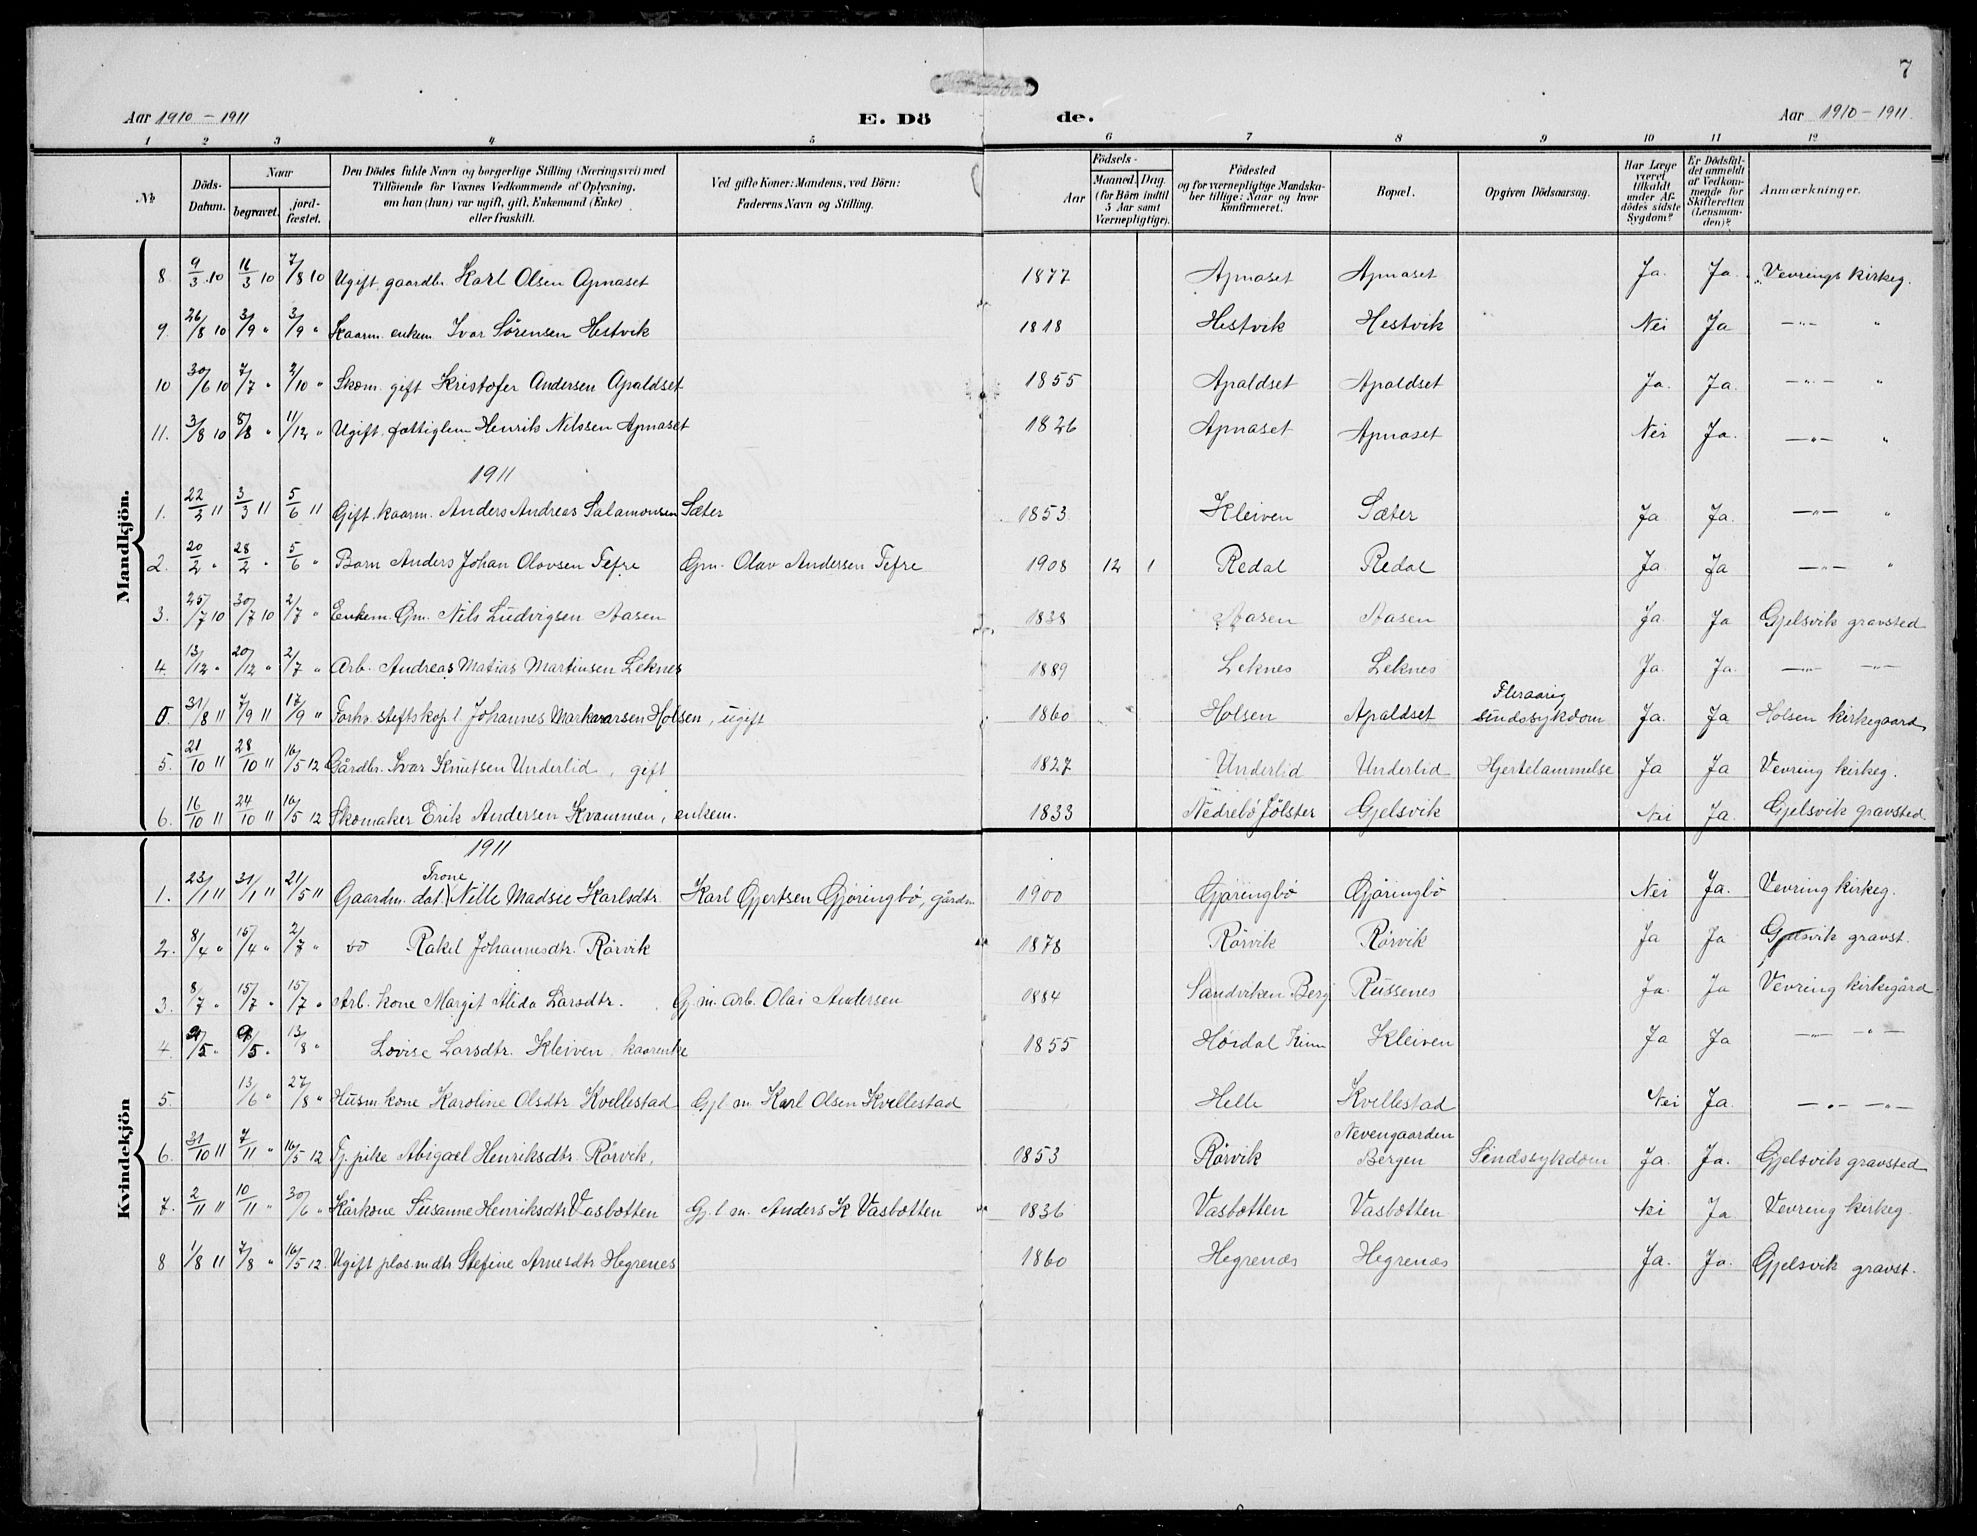 7
Aar 1910 - 1911 E. Dö de. Aar 1910 - 1911.
1 2 3 4 5 6 7 8 9 10 11 12
No
Döds-Datum.
Naar
begravet.
jordfæstet.
Den Dödes fulde Navn og borgerlige Stilling (Næringsvei) med
Tilföiende for Voxnes Vedkommende af Oplysning,
om han (hun) var ugift, gift, Enkemand (Enke)
eller fraskilt.
Ved gifte Koner: Mandens, ved Börn:
Faderens Navn og Stilling.
Födsels-
Aar
Maaned. Dag.
(for Börn indtil
5 Aar samt
Værnepligtige).
Födested
og for værnepligtige Mandskaber tillige: Naar og hvor
konfirmeret.
Bopæl.
Opgiven Dödsaarsag.
Har Læge
været
tilkaldt
under Afdödes sidste
Sygdom?
Er Dödsfaldet anmeldt
af Vedkommende for
Skifteretten
(Lensmanden)?
Anmærkninger.
Mandkjön.
8. 9/3 10 16/3 10 7/8 10 Ugift gaardbr. Karl Olsen Apnaset 1877 Apnaset Apnaset Ja. Ja. Vevrings kirkeg.
9. 26/8 10 3/9 " 3/9 " Kaarm. enkem. Ivar Sørensen Hestvik 1818 Hestvik Hestvik Nei Ja -"- "
10 30/6 10 7/7 " 2/10 " Skom. gift Kristofer Andersen Apaldset 1855 Apaldset Apaldset Ja. Ja. -"- "
11. 3/8 10 8/8 " 11/12 " Ugift fattiglem Henrik Nilssen Apnaset 1826 Apnaset Apnaset Nei Ja. -"- "
1911
1. 22/2 11 3/3 11 5/6 11 Gift kaarm. Anders Andreas Salamonsen Sæter 1853 Kleiven Sæter Ja Ja. -"- "
2. 20/2 " 28/2 " 5/6 " Barn Anders Johan Olavsen Tefre Gm. Olav Andersen Tefre 1908 12 1 Redal Redal Ja Ja -"- "
3. 25/7 10 30/7 10 2/7 " Enkem. Gm. Nils Ludvigsen Aasen 1838 Aasen Aasen Ja. Ja Gjelsvik gravsted
4. 13/12 " 20/12 " 2/7 " Arb. Andreas Matias Martinsen Leknes 1889 Leknes Leknes Ja. Ja. -"- -"-
0. 31/8 11 7/9 11 17/9 " Forhv. Johannes Holsen, ugift 1860 Holsen Apaldset Fleraarig sindssykdom Ja. Ja Holsen kirkegaard
5. 21/10 11 28/10 11 16/5 12 Gårdbr. Ivar Knutsen Underlid, gift 1827 Underlid Underlid Hjertelammelse Ja Ja Vevring kirkeg.
6. 16/10 11 24/10 11 16/5 12 Skomaker Erik Andersen Kvammen, enkem. 1833 Nedrebö Jölster Gjelsvik Nei Ja. Gjelsvik gravsted.
Kvindekjön
1911
1. 23/1 11 31/1 11 21/5 11 Gaardm. dat. Nille Madsie Karlsdtr. Karl Gjertsen Gjöringbö, gårdm 1900 Gjöringbö Gjöringbö Nei Ja. Vevring kirkeg.
2. 8/4 " 15/4 " 2/7 " Rakel Johannesdtr. Rörvik 1878 Rörvik Rörvik Ja Ja Gjelsvik gravst.
3. 8/7 " 15/7 " 15/7 " Arb. kone Margit Alida Larsdtr. G. m. arb. Olai Andersen 1884 Sandviken Berg Russenes Ja. Ja Vevring kirkegård
4. 5 " 9/5 " 13/8 " Lovise Larsdtr. Kleiven, kaarenke 1855 Hørdal Kinn Kleiven Ja Ja -"- -"-
5. 13/6 " 27/8 " Husm. kone Karoline Olsdtr Kvellestad Gjl m. Karl Olsen Kvellestad Helle Kvellestad Nei Ja. -"- -"-
6. 31/10 11 7/11 " 16/5 12 Tj. pike Abigael Henriksdtr. Rörvik. 1853 Rörvik Nevengaarden Bergen Sindssykdom Ja. Ja. Gjelsvik gravsted
7. 2/11 11 10/11 " 30/6 " Kårkone Susanne Henriksdtr Vasbotten Gj. l m. Anders K Vasbotten 1836 Vasbotten Vasbotten Nei Ja Vevring kirkeg.
8 1/8 11 7/8 " 16/5 12. Ugift plas.mdtr Stefine Arnesdtr Hegrenes 1860 Hegrenæs Hegrenæs Ja. Ja. Gjelsvik gravst.